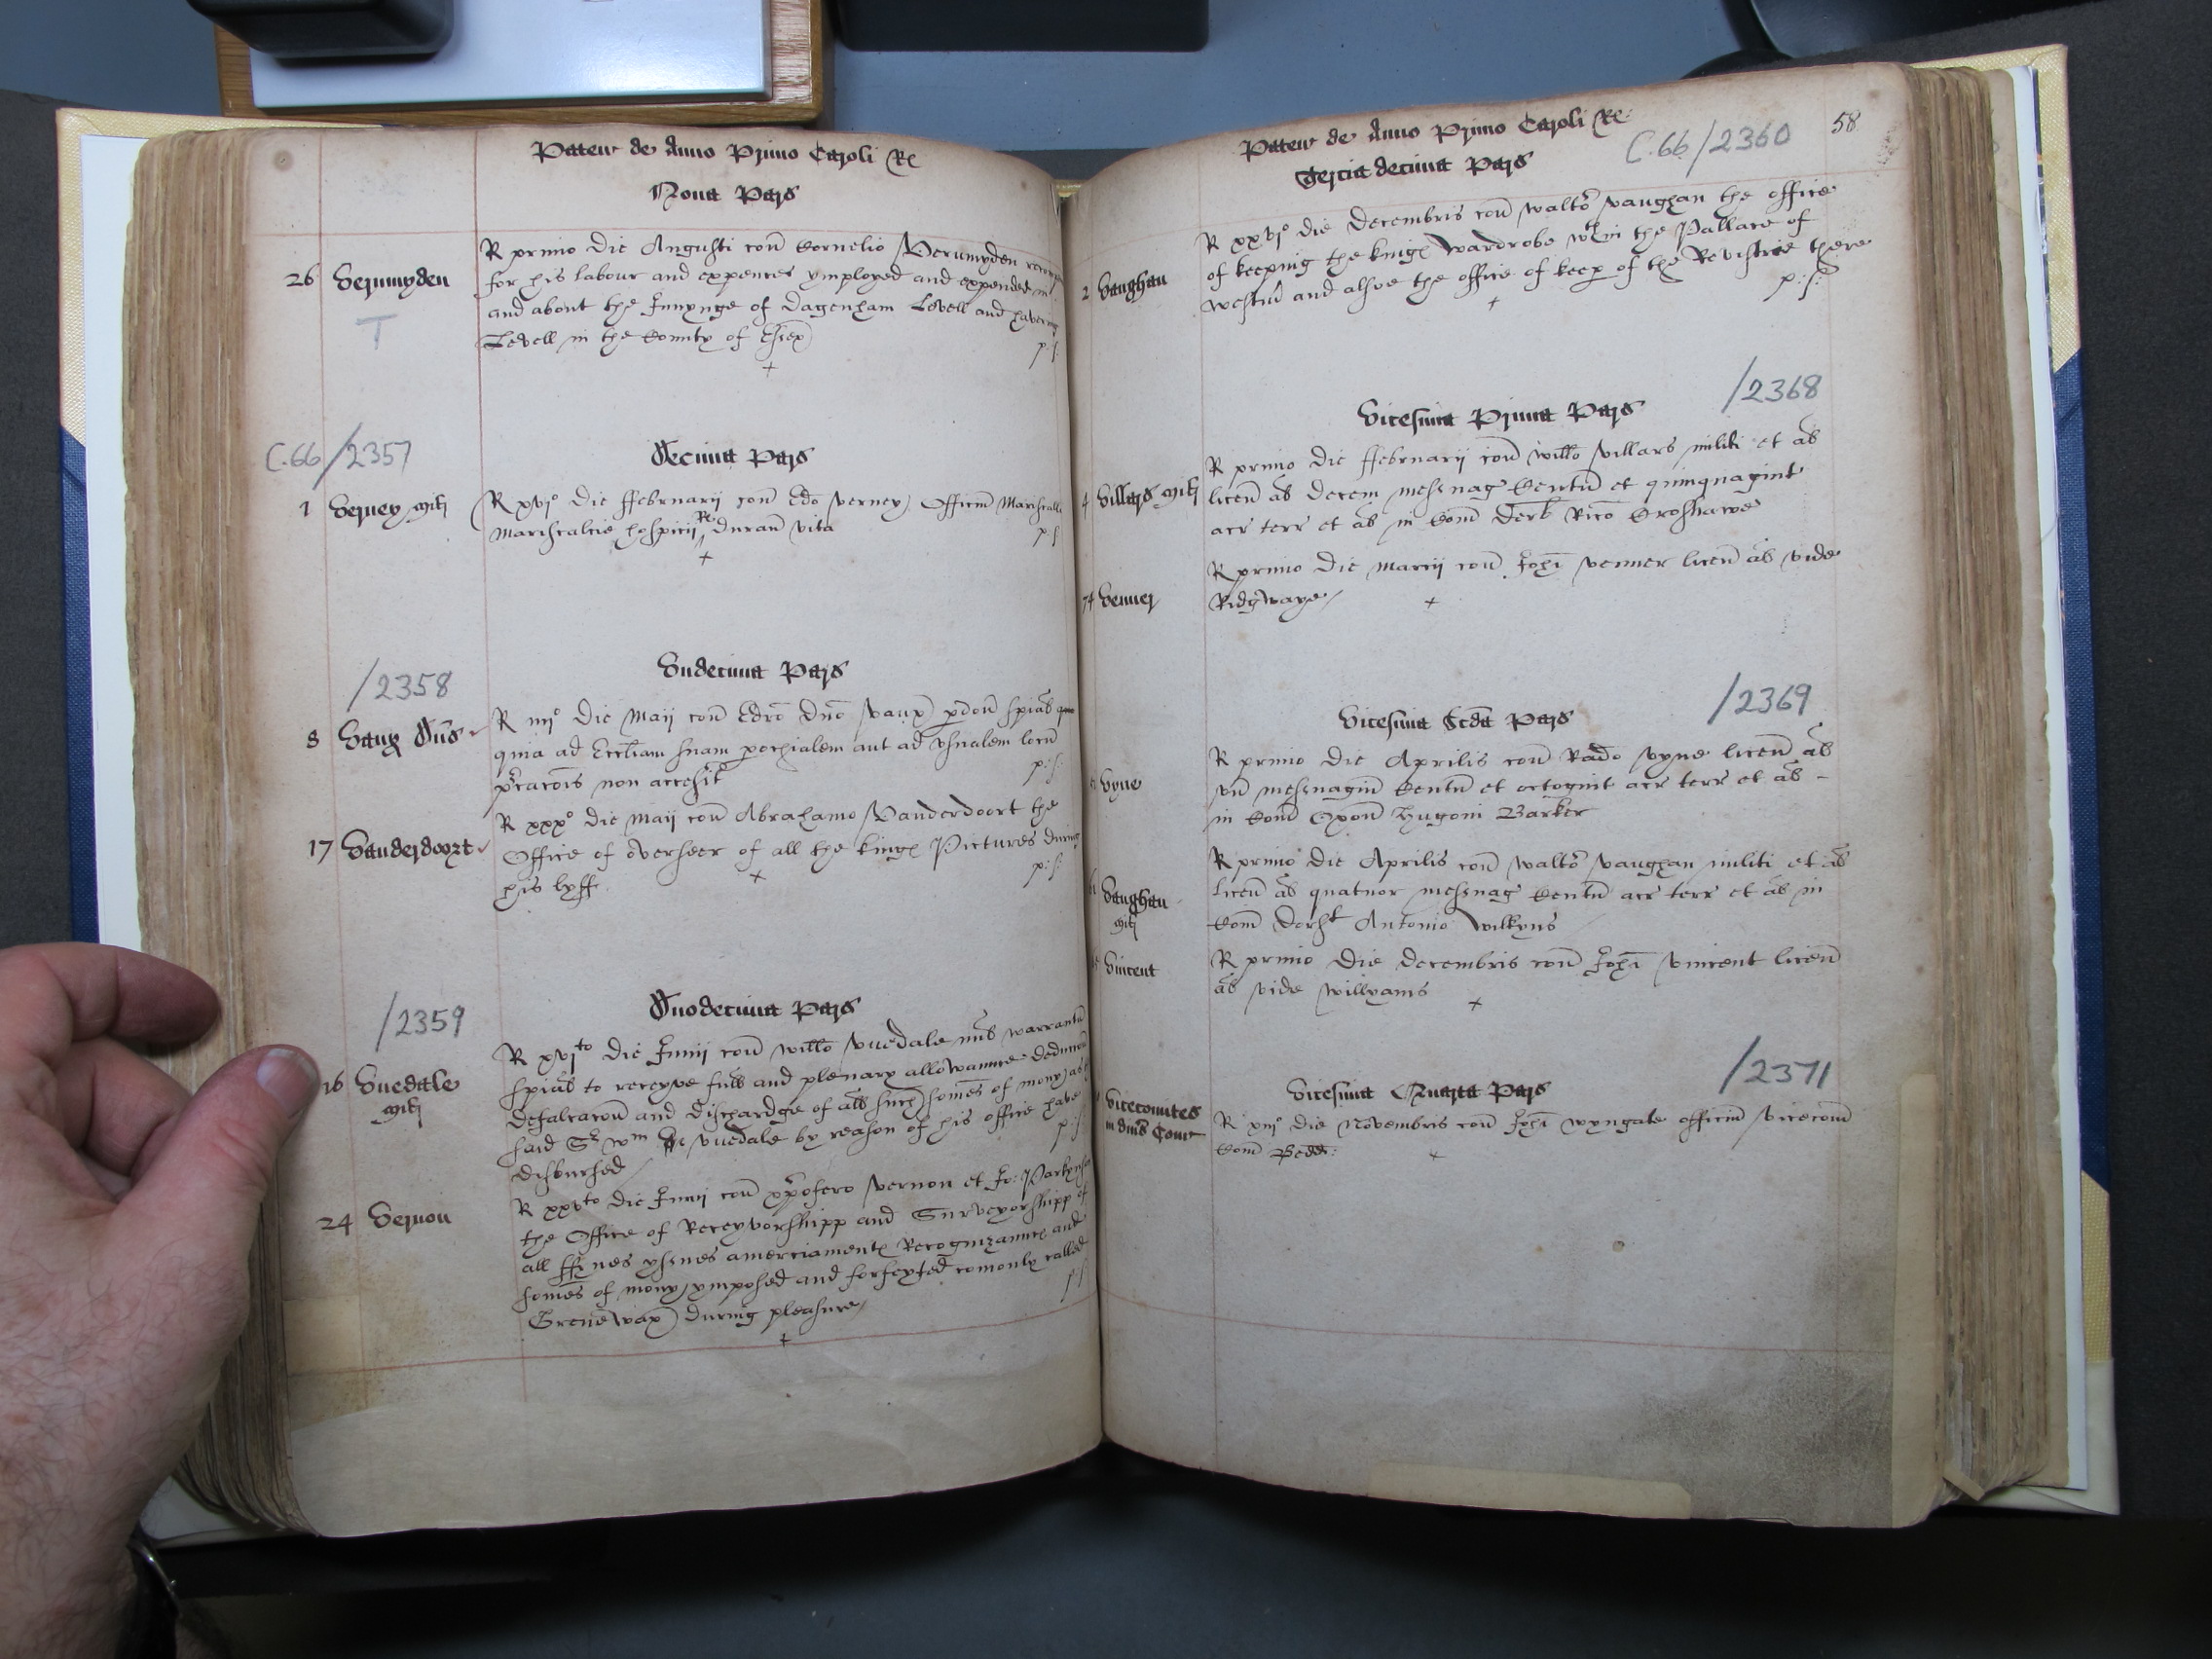 Paten de Anno Primo Caroli Re
Nona Pars
26 Vermuyden
R primo die Augusti con Cornelio Vermuyden
for his labour and expences ymployed and expended in
and about the Innynge of Dagenham Levell and havering
Levell in the County of Essex
p: s:
T
C.66/2357
Decima Pars
1 Verney mil
R xvjo die ffebruarij con Edo verney Officiu Marescalli
Marescalcie hospicij Re duran vita
p: s
/2358
Undecima Pars
8 Vaux Dns
R iiijo die Maij con Edro Dno vaux pdon spial
quia ad Eccliam suam pochialem aut ad usualem locu
pcacois non accessit
p: s:
17 Vanderdoort
R xxxo die Maij con Abrahamo Vanderdoort the
Office of overseer of all the kings Pictures during
his lyff
p: s:
/2359
Duodecima Pars
16 Vuedale mil
R xvjto die Junij con Willo vuedale mil warrantu
spial to receyve full and plenary allowaunce deduccon
defalcacon and dischardge of all such somes of mony as
said Sr Wm vuedale by reason of his office have
disbursed
p: s:
24 Vernon
R xxvto die Junij con xpofero vernon et Jo: Parkyns
the Office of Receyvorshipp and Surveyorshipp of
all ffynes yssues amerciaments Recognizaunces and
somes of mony ymposed and forfeyted comonly called
Grenewax during pleasure
p: s
Paten de Anno Primo Caroli Re:
C.66/2360
58
Tercia decima Pars
2 Vaughan
R xxvjo die Decembris con Walto vaughan the office
of keeping the kings wardrobe wthin the Pallace of
westm and alsoe the office of keep of the Revistrie there
p: s:
/2368
Vicesima Prima Pars
4 Villars mil
R primo die ffebruarij con Willo villars militi et al
licen al decem messuag Centu et quinquagint
acr terr et al in Com Derb Rico Croshawe
74 Venner
R primo die Marcij con Johi venner licen al vide
Ridgwaye
/2369
Vicesima Scda Pars
Vyne
R primo die Aprilis con Rado vyne licen al
un messuagiu Centu et octogint acr terr et al
in Com Oxon Hugoni Barker
Vaughan mil
R primo die Aprilis con Walto vaughan militi et al
licen al quatuor messuag Centu acr terr et al in
Com Dorst Antonio Wilkyns
Vincent
R primo die Decembris con Johi vincent licen
al vide Willyams
/2371
Vicesima Quarta Pars
Vicecomites in divs Com
R xiijo die Novembris con Johi wyngate officiu vicecom
Com Bedd: